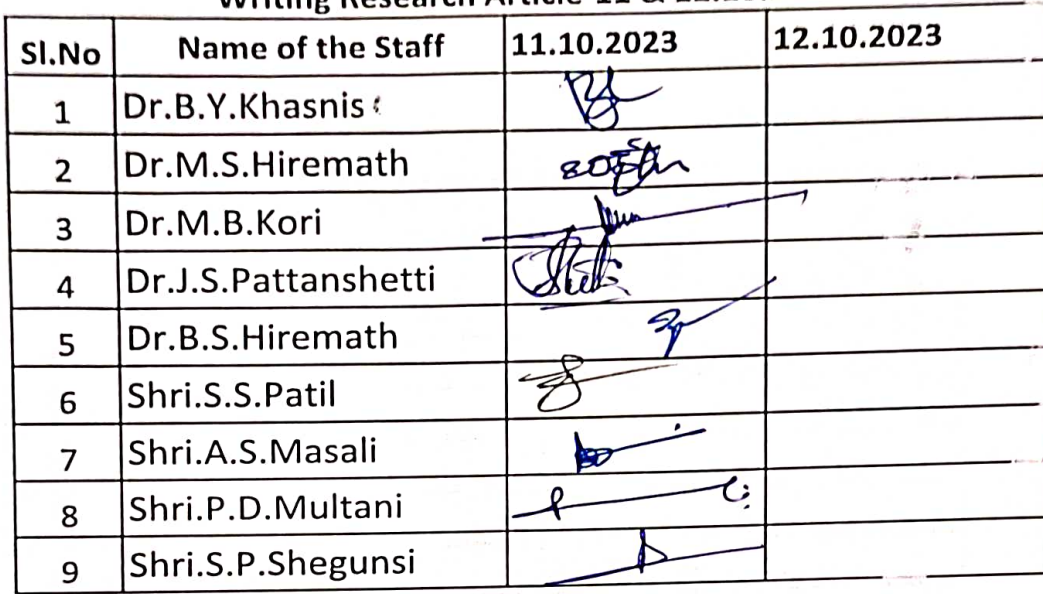 Writing Research Article 11 &
Sl.No Name of the Staff 11.10.2023 12.10.2023
1 Dr.B.Y.Khasnis
2 Dr.M.S.Hiremath
3 Dr.M.B.Kori
4 Dr.J.S.Pattanshetti
5 Dr.B.S.Hiremath
6 Shri.S.S.Patil
7 Shri.A.S.Masali
8 Shri.P.D.Multani
9 Shri.S.P.Shegunsi